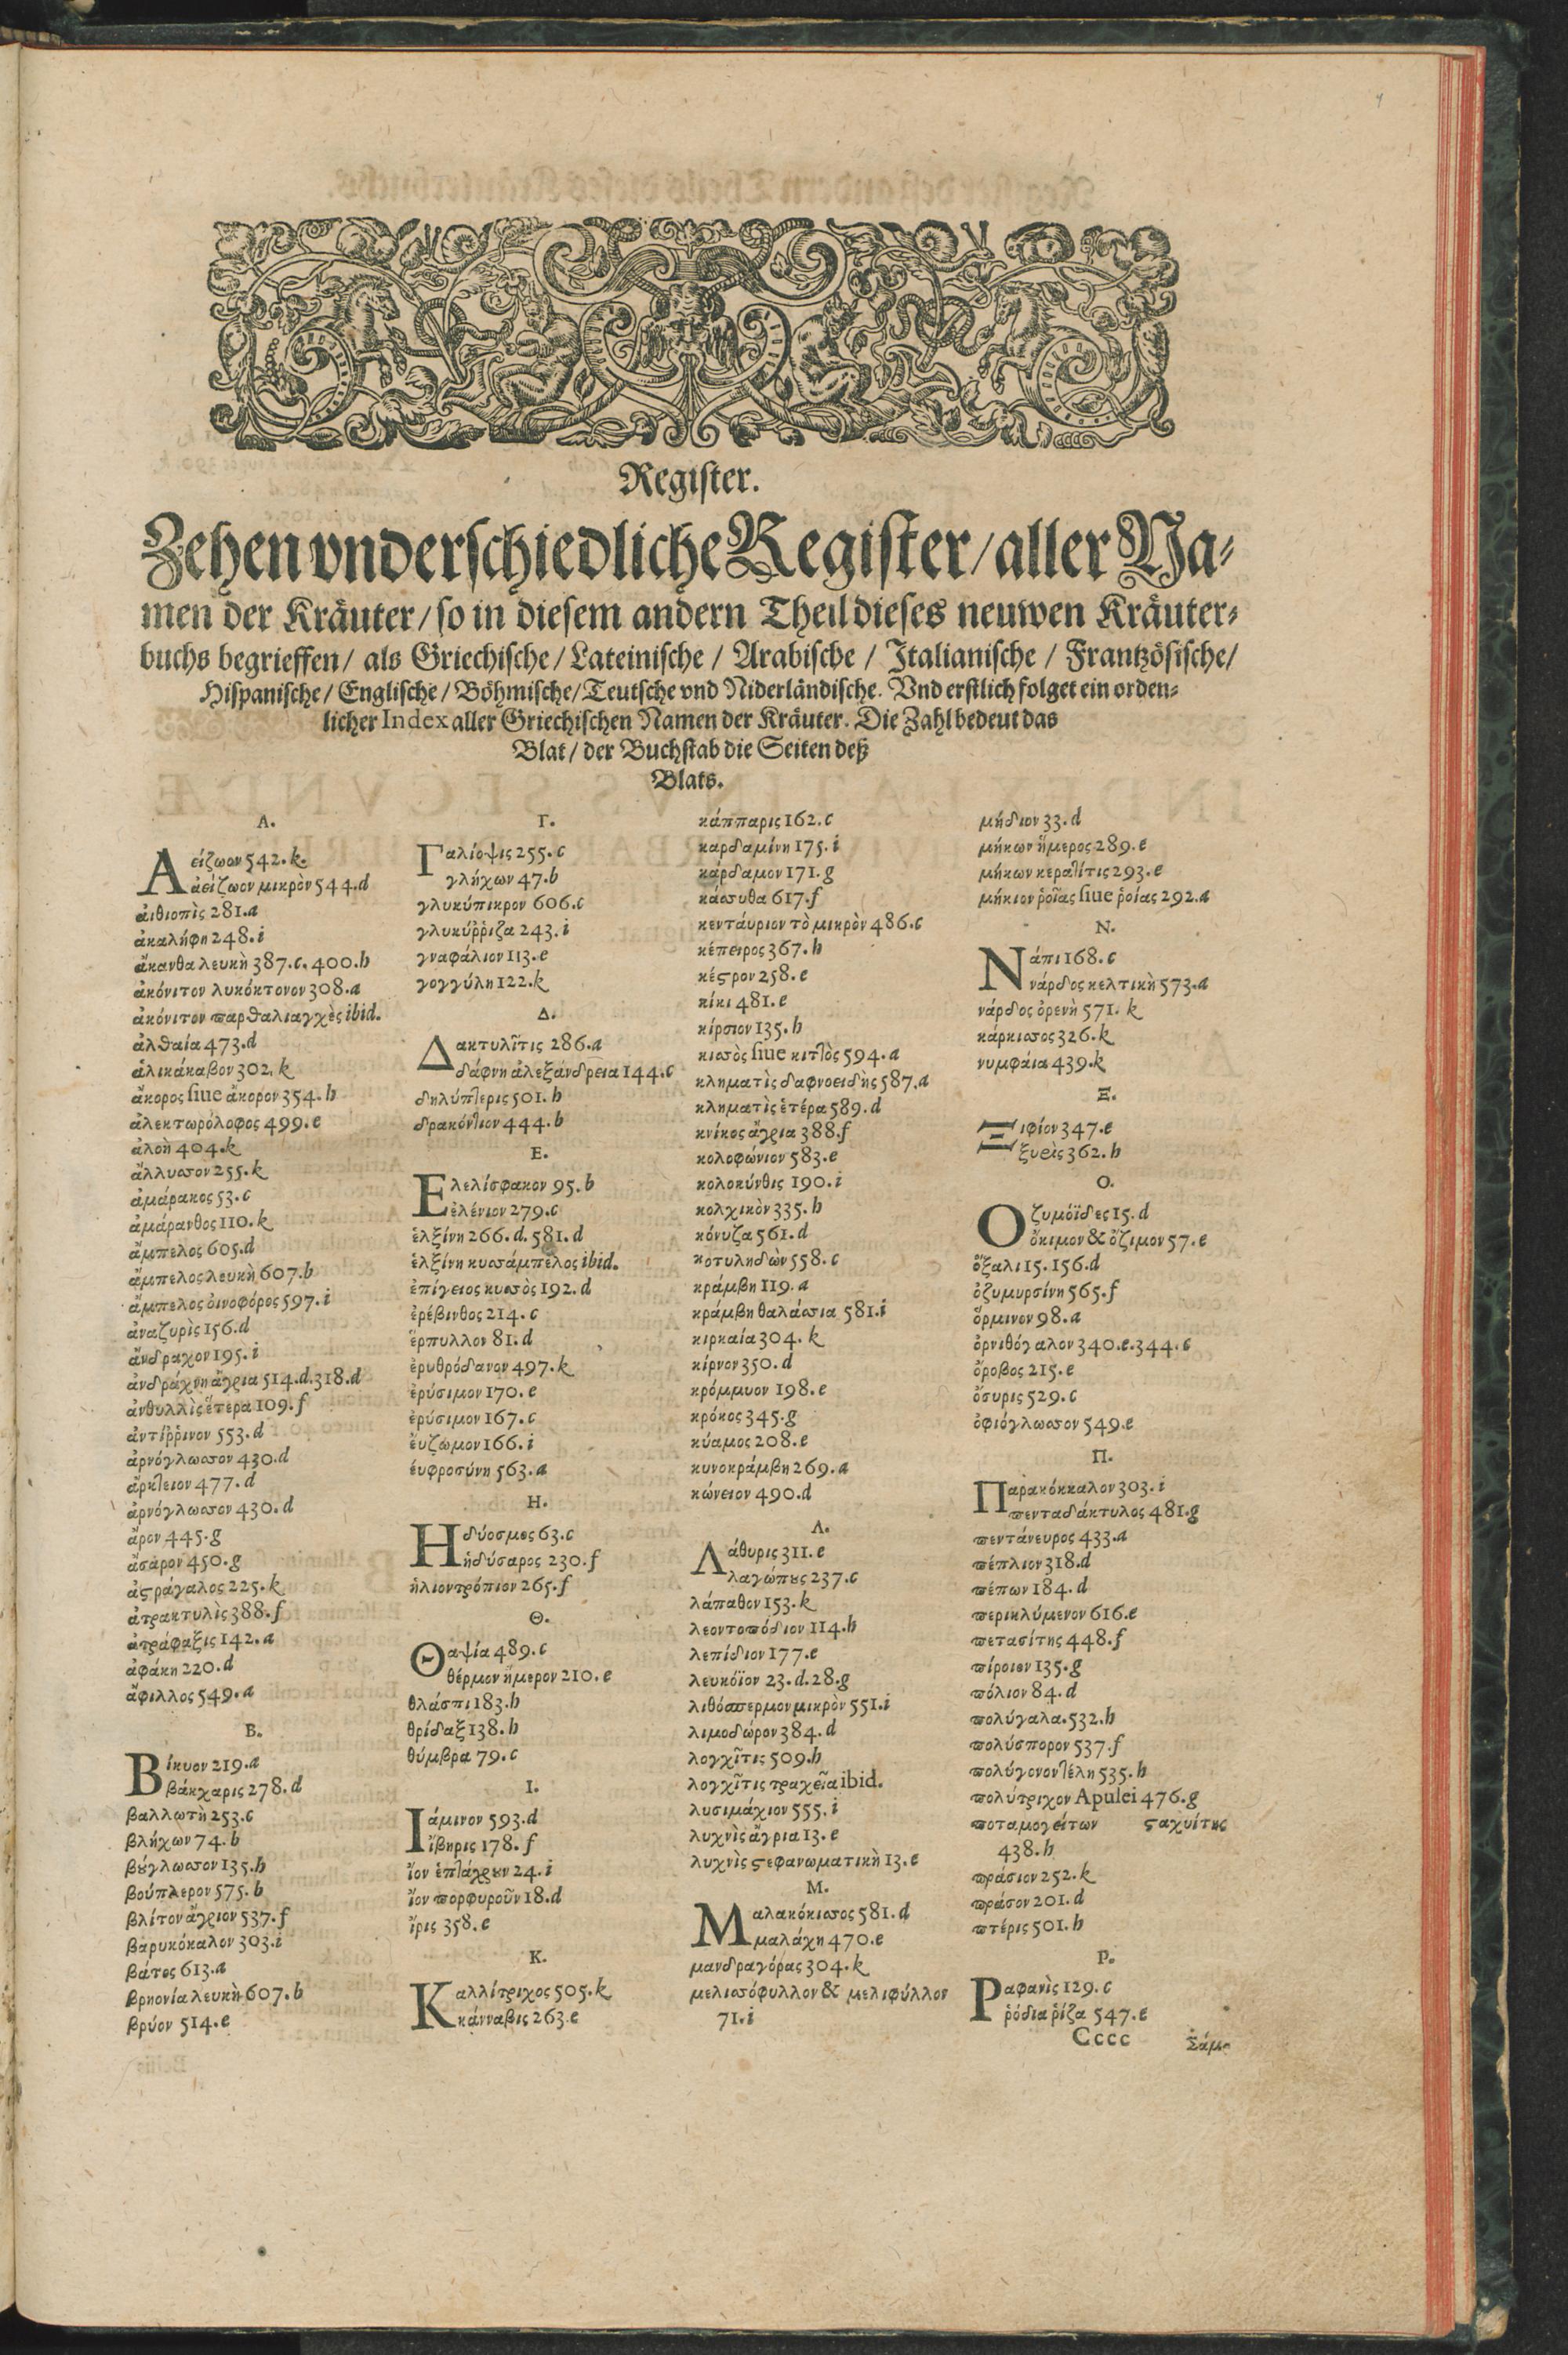 Register.
Zehen vnderschiedliche Register/ aller Na⸗
men der Kräuter/ so in diesem andern Theil dieses neuwen Kräuter⸗
buchs begrieffen/ als Griechische/ Lateinische/ Arabische/ Italianische/ Frantzösische/
Hispanische/ Englische/ Böhmische/ Teutsche vnd Niderländische. Vnd erstlich folget ein orden⸗
licher Index aller Griechischen Namen der Kräuter. Die Zahl bedeut das
Blat/ der Buchstab die Seiten deß
Blats.
Α.
Αείζωον 542.k.
ἀείζωον μικρὸν 544.d
ἀιθιοπὶς 281.a
ἀκαλήφη 248.i
ἄκανθα λευκὴ 387.c. 400.h
ἀκόνιτον λυκόκτονον 308.a
ἀκόνιτον παρδαλιαγχὲς ibid.
ἀλθαία 473.d
ἁλικάκαβον 302.k
ἄκορος siue ἄκορον 354.h
ἀλεκτωρόλοφος 499.e
ἀλοὴ 404.k
ἄλλυσσον 255.k
ἀμάρακος 53.c
ἀμάρανθος 110.k
ἄμπελος 605.d
ἄμπελος λευκὴ 607.b
ἄμπελος ὀινοφόρος 597.i
ἀναζυρὶς 156.d
ἄνδραχον 195.i
ἀνδράχνη ἄγρια 514.d.318.d
ἀνθυλλὶς ἕτερα 109.f
ἀντίῤῥινον 553.d
ἀρνόγλωσσον 430.d
ἄρκτειον 477.d
ἀρνόγλωσσον 430.d
ἄρον 445.g
ἄσαρον 450.g
ἀςράγαλος 225.k
ἀτρακτυλὶς 388.f
ἀτράφαξις 142.a
ἀφάκη 220.d
ἄφιλλος 549.a
Β.
Βίκυον 219.a
βάκχαρις 278.d
βαλλωτὴ 253.c
βλήχων 74.b
βȣ́γλωσσον 135.h
βούπλερον 575.b
βλίτον ἄγριον 537.f
βαρυκόκαλον 303.i
βάτος 613.a
βρηονία λευκὴ 607.b
βρύον 514.e
Γ.
Γαλίοψις 255.c
γλήχων 47.b
γλυκύπικρον 606.c
γλυκύῤῥιζα 243.i
γναφάλιον 113.e
γογγύλη 122.k
Δ.
Δακτυλῖτις 286.a
δάφνη ἀλεξάνδρεια 144.c
δηλύπτερις 501.h
δρακόντιον 444.b
Ε.
Ελελίσφακον 95.b
ἑλένιον 279.c
ἑλξίνη 266.d. 581.d
ἑλξίνη κυσσάμπελος ibid.
ἐπίγειος κυσσὸς 192.d
ἐρέβινθος 214.c
ἕρπυλλον 81.d
ἐρυθρόδανον 497.k
ἐρύσιμον 170.e
ἐρύσιμον 167.c
ἐυζωμον 166.i
ἐυφροσύνη 563.a
Η.
Ηδύοσμος 63.c
ἡδύσαρος 230.f
ἡλιοντρόπιον 265.f
Θ.
Θαψία 489.c
θέρμον ἥμερον 210.e
θλάσπι 183.h
θρίδαξ 138.h
θύμβρα 79.c
Ι.
Ιάμινον 593.d
ἴβηρις 178.f
ἴον 24.i
ἴον πορφυροῦν 18.d
ἴρις 358.c
Κ.
Καλλίτριχος 505.k
κάνναβις 263.e
κάππαρις 162.c
καρδαμίνη 175.i
κάρδαμον 171.g
κάσσυθα 617.f
κενταύριον τὸ μικρὸν 486.c
κέπειρος 367.h
κέςρον 258.e
κίκι 481.e
κίρσιον 135.h
κισσὸς siue κιττὸς 594.a
κληματὶς δαφνοειδὴς 587.a
κληματὶς ἑτέρα 589.d
κνίκος ἄγρια 388.f
κολοφώνιον 583.e
κολοκύνθις 190.i
κολχικὸν 335.h
κόνυζα 561.d
κοτυληδὼν 558.c
κράμβη 119.a
κράμβη θαλάσσια 581.i
κιρκαία 304.k
κίρνον 350.d
κρόμμυον 198.e
κρόκος 345.g
κύαμος 208.e
κυνοκράμβη 269.a
κώνειον 490.d
Λ.
Λάθυρις 311.e
λαγώπȣς 237.c
λάπαθον 153.k
λεοντοπόδιον 114.h
λεπίδιον 177.e
λευκόϊον 23.d.28.g
λιθόσπερμον μικρὸν 551.i
λιμοδώρον 384.d
λογχῖτις 509.h
λογχῖτις τραχεῖα ibid.
λυσιμάχιον 555.i
λυχνὶς ἄγρια 13.e
λυχνὶς ςεφανωματικὴ 13.e
Μ.
Μαλακόκισσος 581.d
μαλάχη 470.e
μανδραγόρας 304.k
μελισσόφυλλον & μελιφύλλον
71.i
μήδιον 33.d
μήκων ἥμερος 289.e
μήκων κερατίτις 293.e
μήκιον ῥοῖας siue ῥοίας 292.a
Ν.
Νάπι 168.c
νάρδος κελτικὴ 573.a
νάρδος ὀρενὴ 571.k
κάρκισσος 326.k
νυμφάια 439.k
Ξ.
Ξιφίον 347.e
ξυρὶς 362.h
Ο.
Οζυμόϊδες 15.d
ὄκιμον & ὄζιμον 57.e
ὄξαλι 15.156.d
ὀζυμυρσίνη 565.f
ὅρμινον 98.a
ὀρνιθόγαλον 340.e.344.c
ὄροβος 215.e
ὄσυρις 529.c
ὀφιόγλωσσον 549.e
Π.
Παρακόκκαλον 303.i
πενταδάκτυλος 481.g
πεντάνευρος 433.a
πέπλιον 318.d
πέπων 184.d
περικλύμενον 616.e
πετασίτης 448.f
135.g
πόλιον 84.d
πολύγαλα.532.h
πολύσπορον 537.f
535.h
πολύτριχον Apulei 476.g
ποταμογείτων ςαχυίτης
438.h
πράσιον 252.k
πράσον 201.d
πτέρις 501.h
Ρ.
Ραφανὶς 129.c
ῥόδια ῥίζα 547.e
Cccc Σάμ⸗